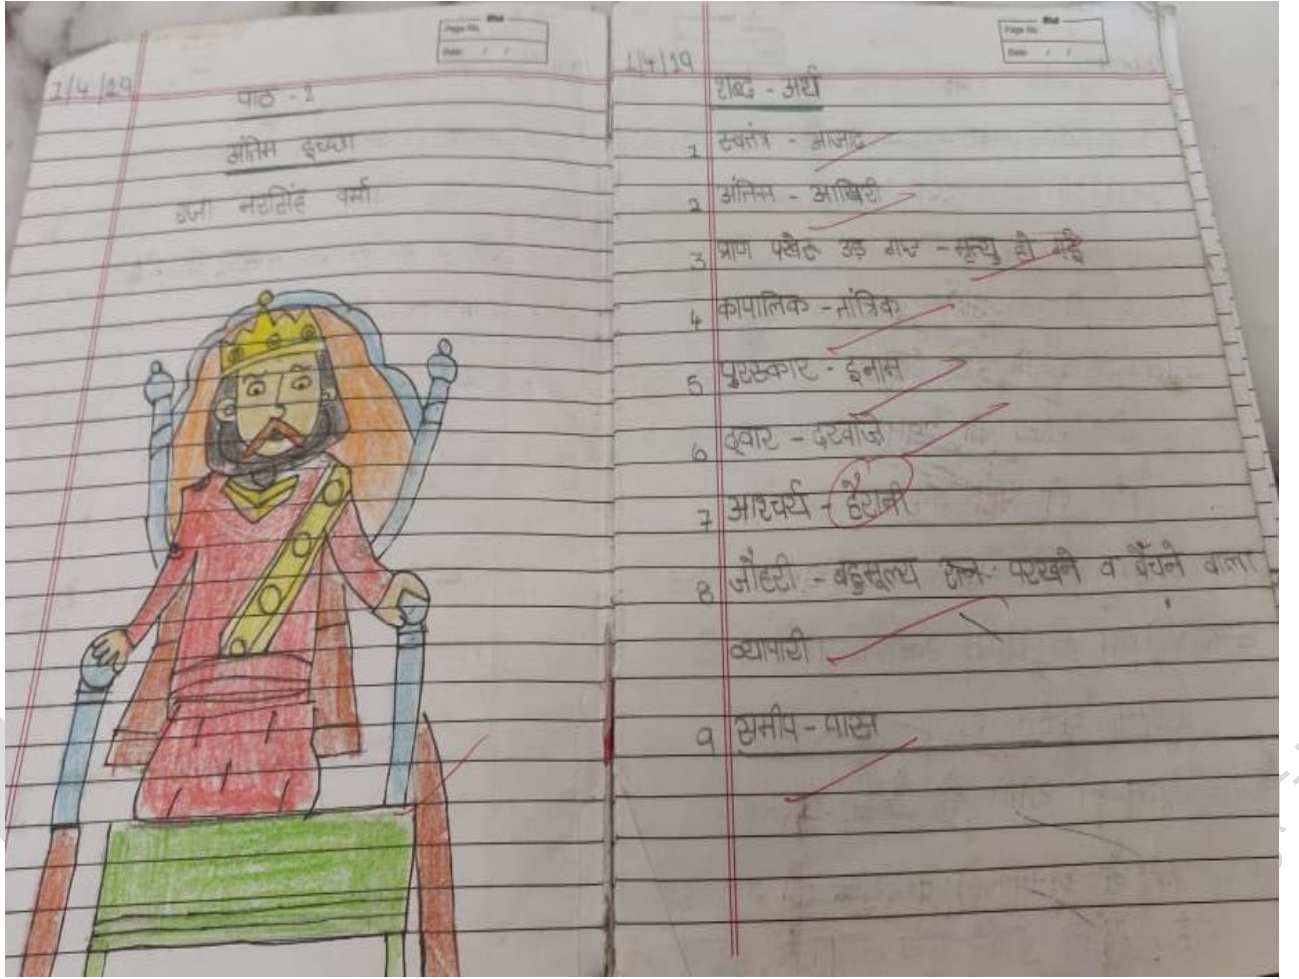 Page No.
Date: / /
1/4/19
पाठ - 1
अंतिम इच्छा
राजा नरसिंह वर्मा
Page No.
Date: / /
1/4/19
शब्द - अर्थ
1 स्वतंत्र - आजाद
2 अंतिम - आखिरी
3 प्राण पखेरू उड़ गए - मृत्यु हो गई
4 कापालिक - तांत्रिक
5 पुरस्कार - इनाम
6 द्वार - दरवाजे
7 आश्चर्य - हैरानी
8 जौहरी - बहुमूल्य रत्न परखने व बेचने वाला
व्यापारी
9 समीप - पास